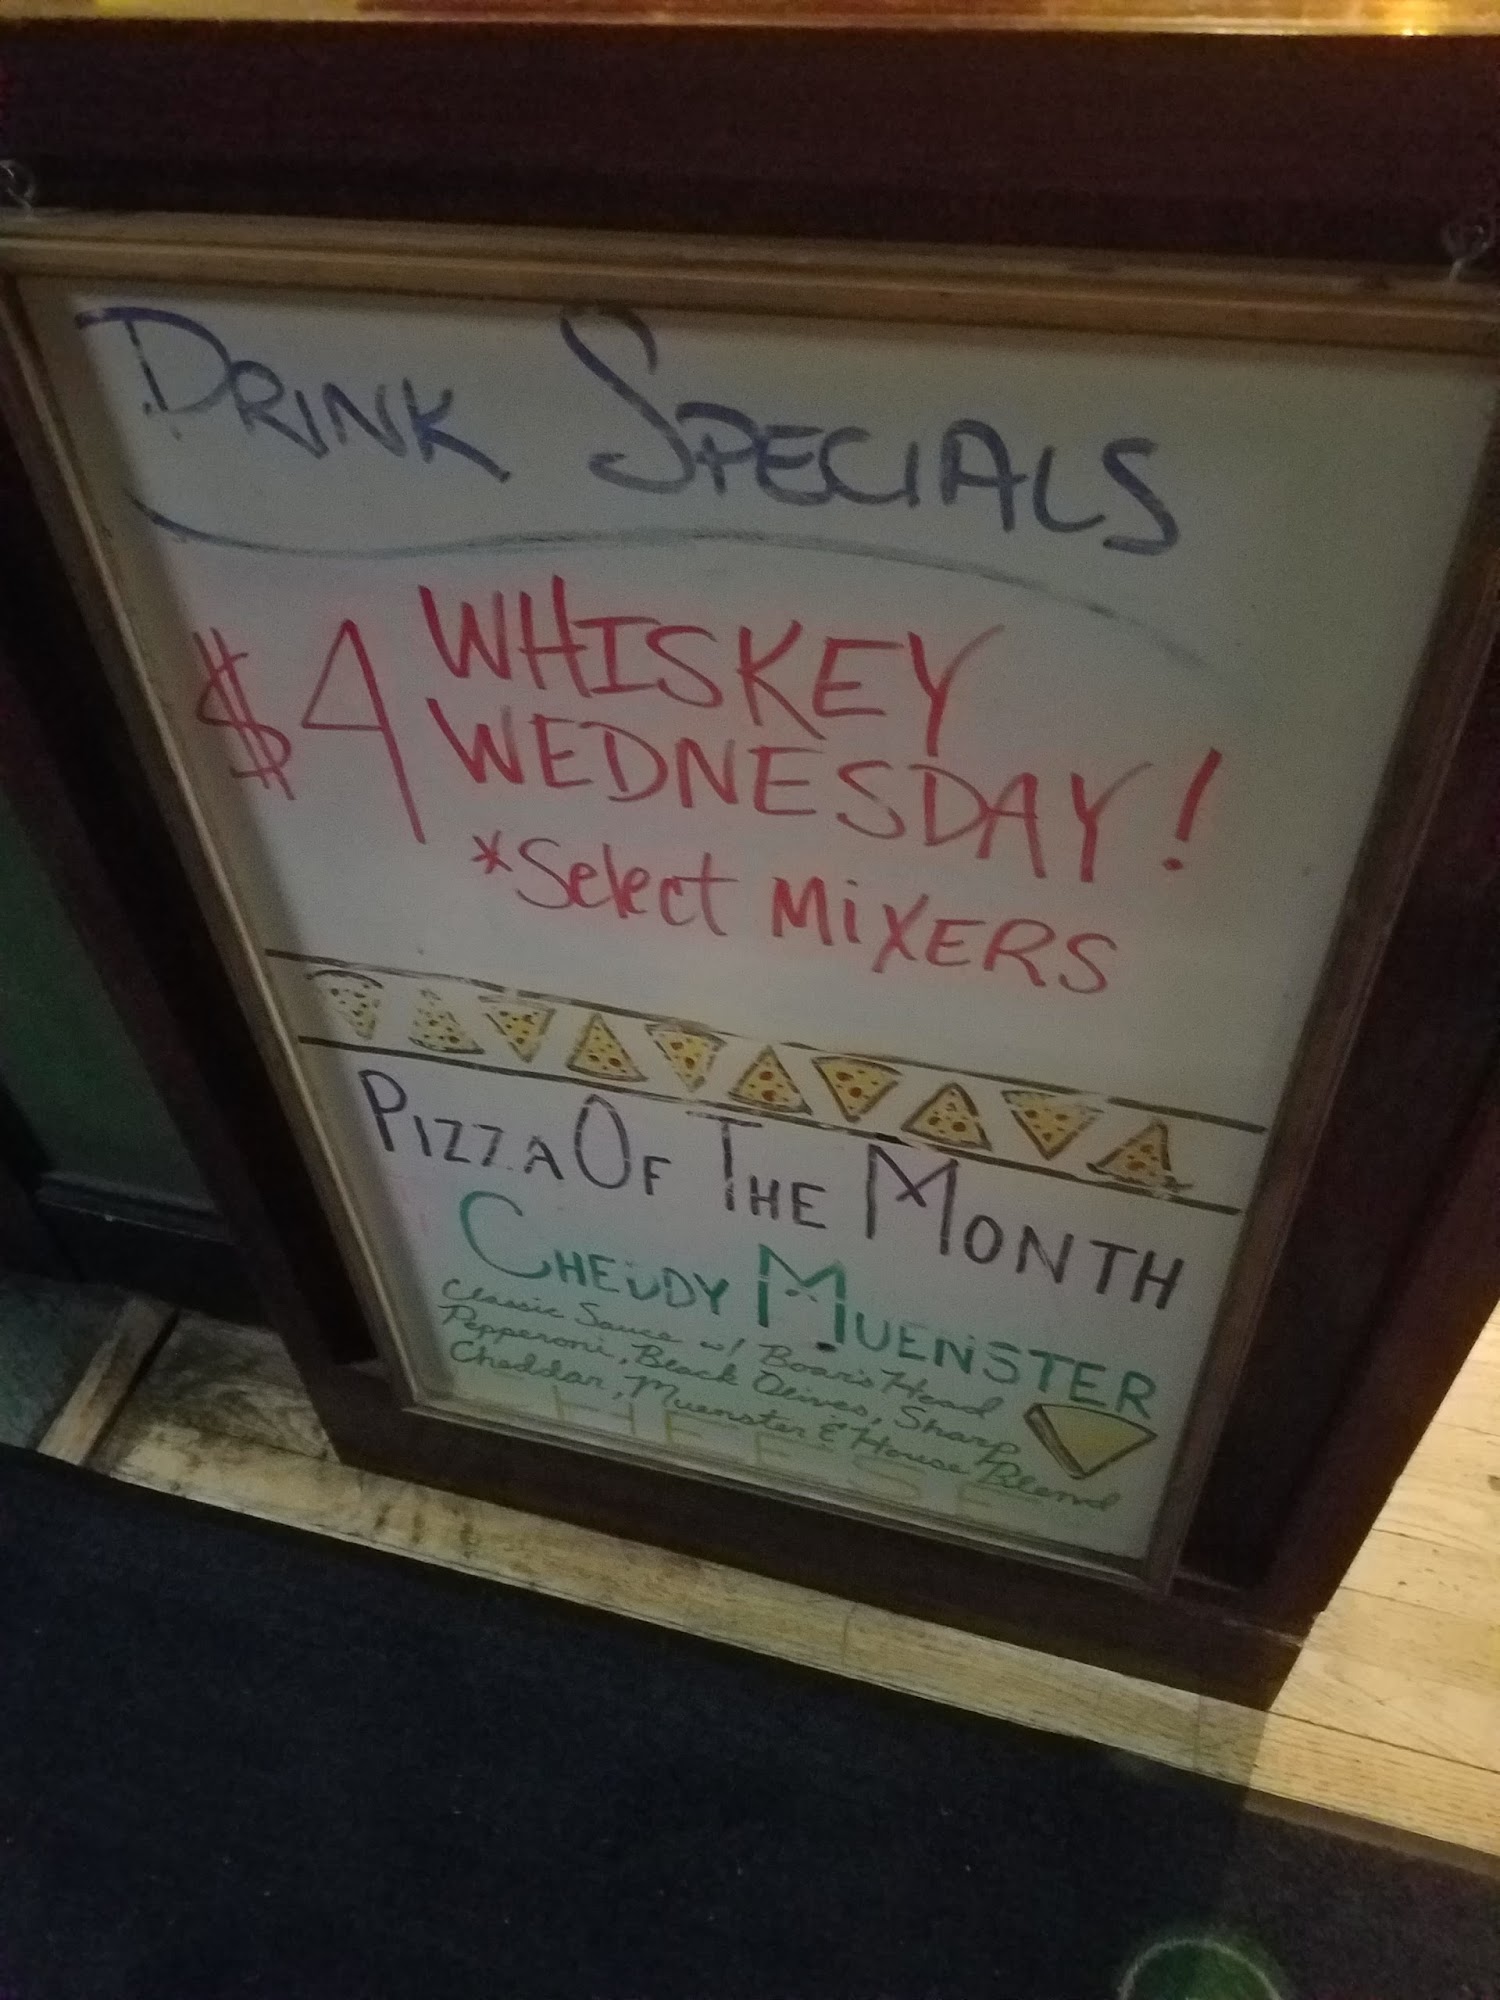 DRINK SPECIALS
$4 WHISKEY
WEDNESDAY!
*Select MiXERS
PIZZA OF THE MONTH
MUENSTER
Classic Sauce w/ Boar's Head
Pepperoni, Black Olives, Sharp
Cheddar, Muenster & House Blend
CHEESE